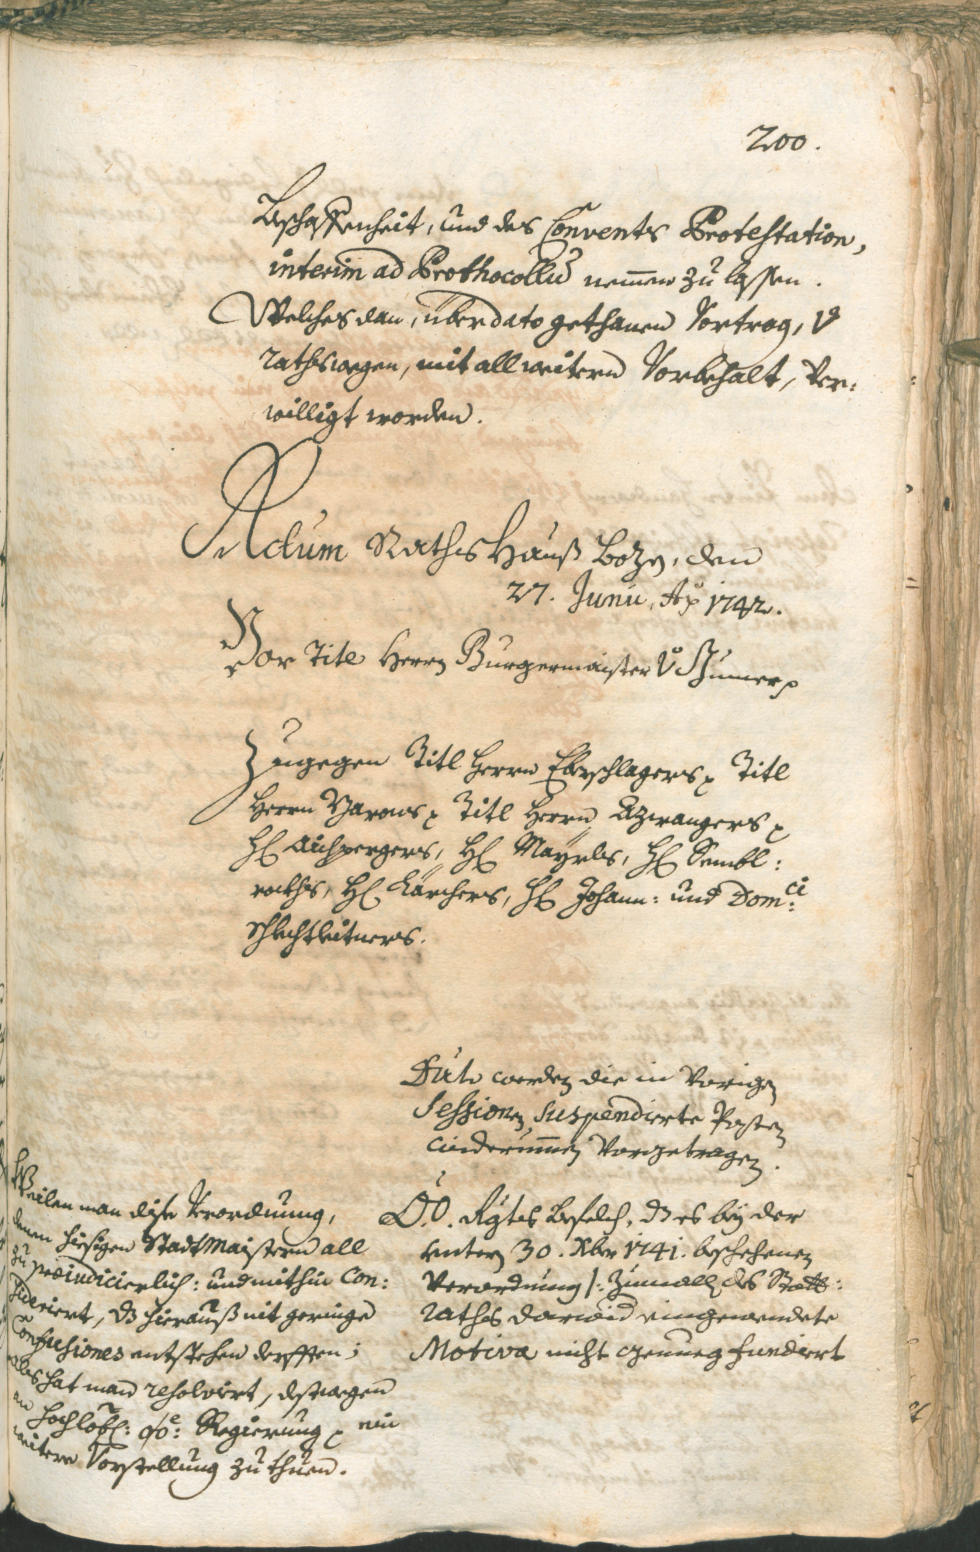 200.
Beschaffenheit, und des Convents Protestation,
interim ad Prothocollũ nemmen zu lassen.
Welches dan, über dato gethanen Vortrag, v
rathswegen, mit all weitern Vorbehalt, ver:
willigt worden.
Actum Raths Hauß Bozen, den
27. Junii, Aõ 1742.
Vor Titl Herrn Burgermaister v Zumer
Zugegen Titl Herrn Eberschlagers Titl
Herrn Titl Herrn Azwangers
H: Aichpergers, H: Mayrls, H: Sembl:
raths, H: Kärchers, H: Johann: und Dom:ci
Schlechtleitners.
Dato werden die in vorigen
Sessionen suspendierte Posten
widerummen vorgetragen.
O:Ö. Rgts Befelch, dz es bey der
unterm 30. Xber 1741. beschehenen
Verordnung /: zumall des Statt:
raths darwid eingewendete
Motiva nicht genueg fundiert
Weilen man dise Verordnung,
denen hiesigen StadtMaistern all
zu præiudicierlich: und mithin con:
sideriert, dz hierauß nit geringe
Confusiones entstehen derfften;
als hat man resolviert, destwegen
an Hochlöbl: oö:e Regierung ein
weitere Vorstellung zu thuen.